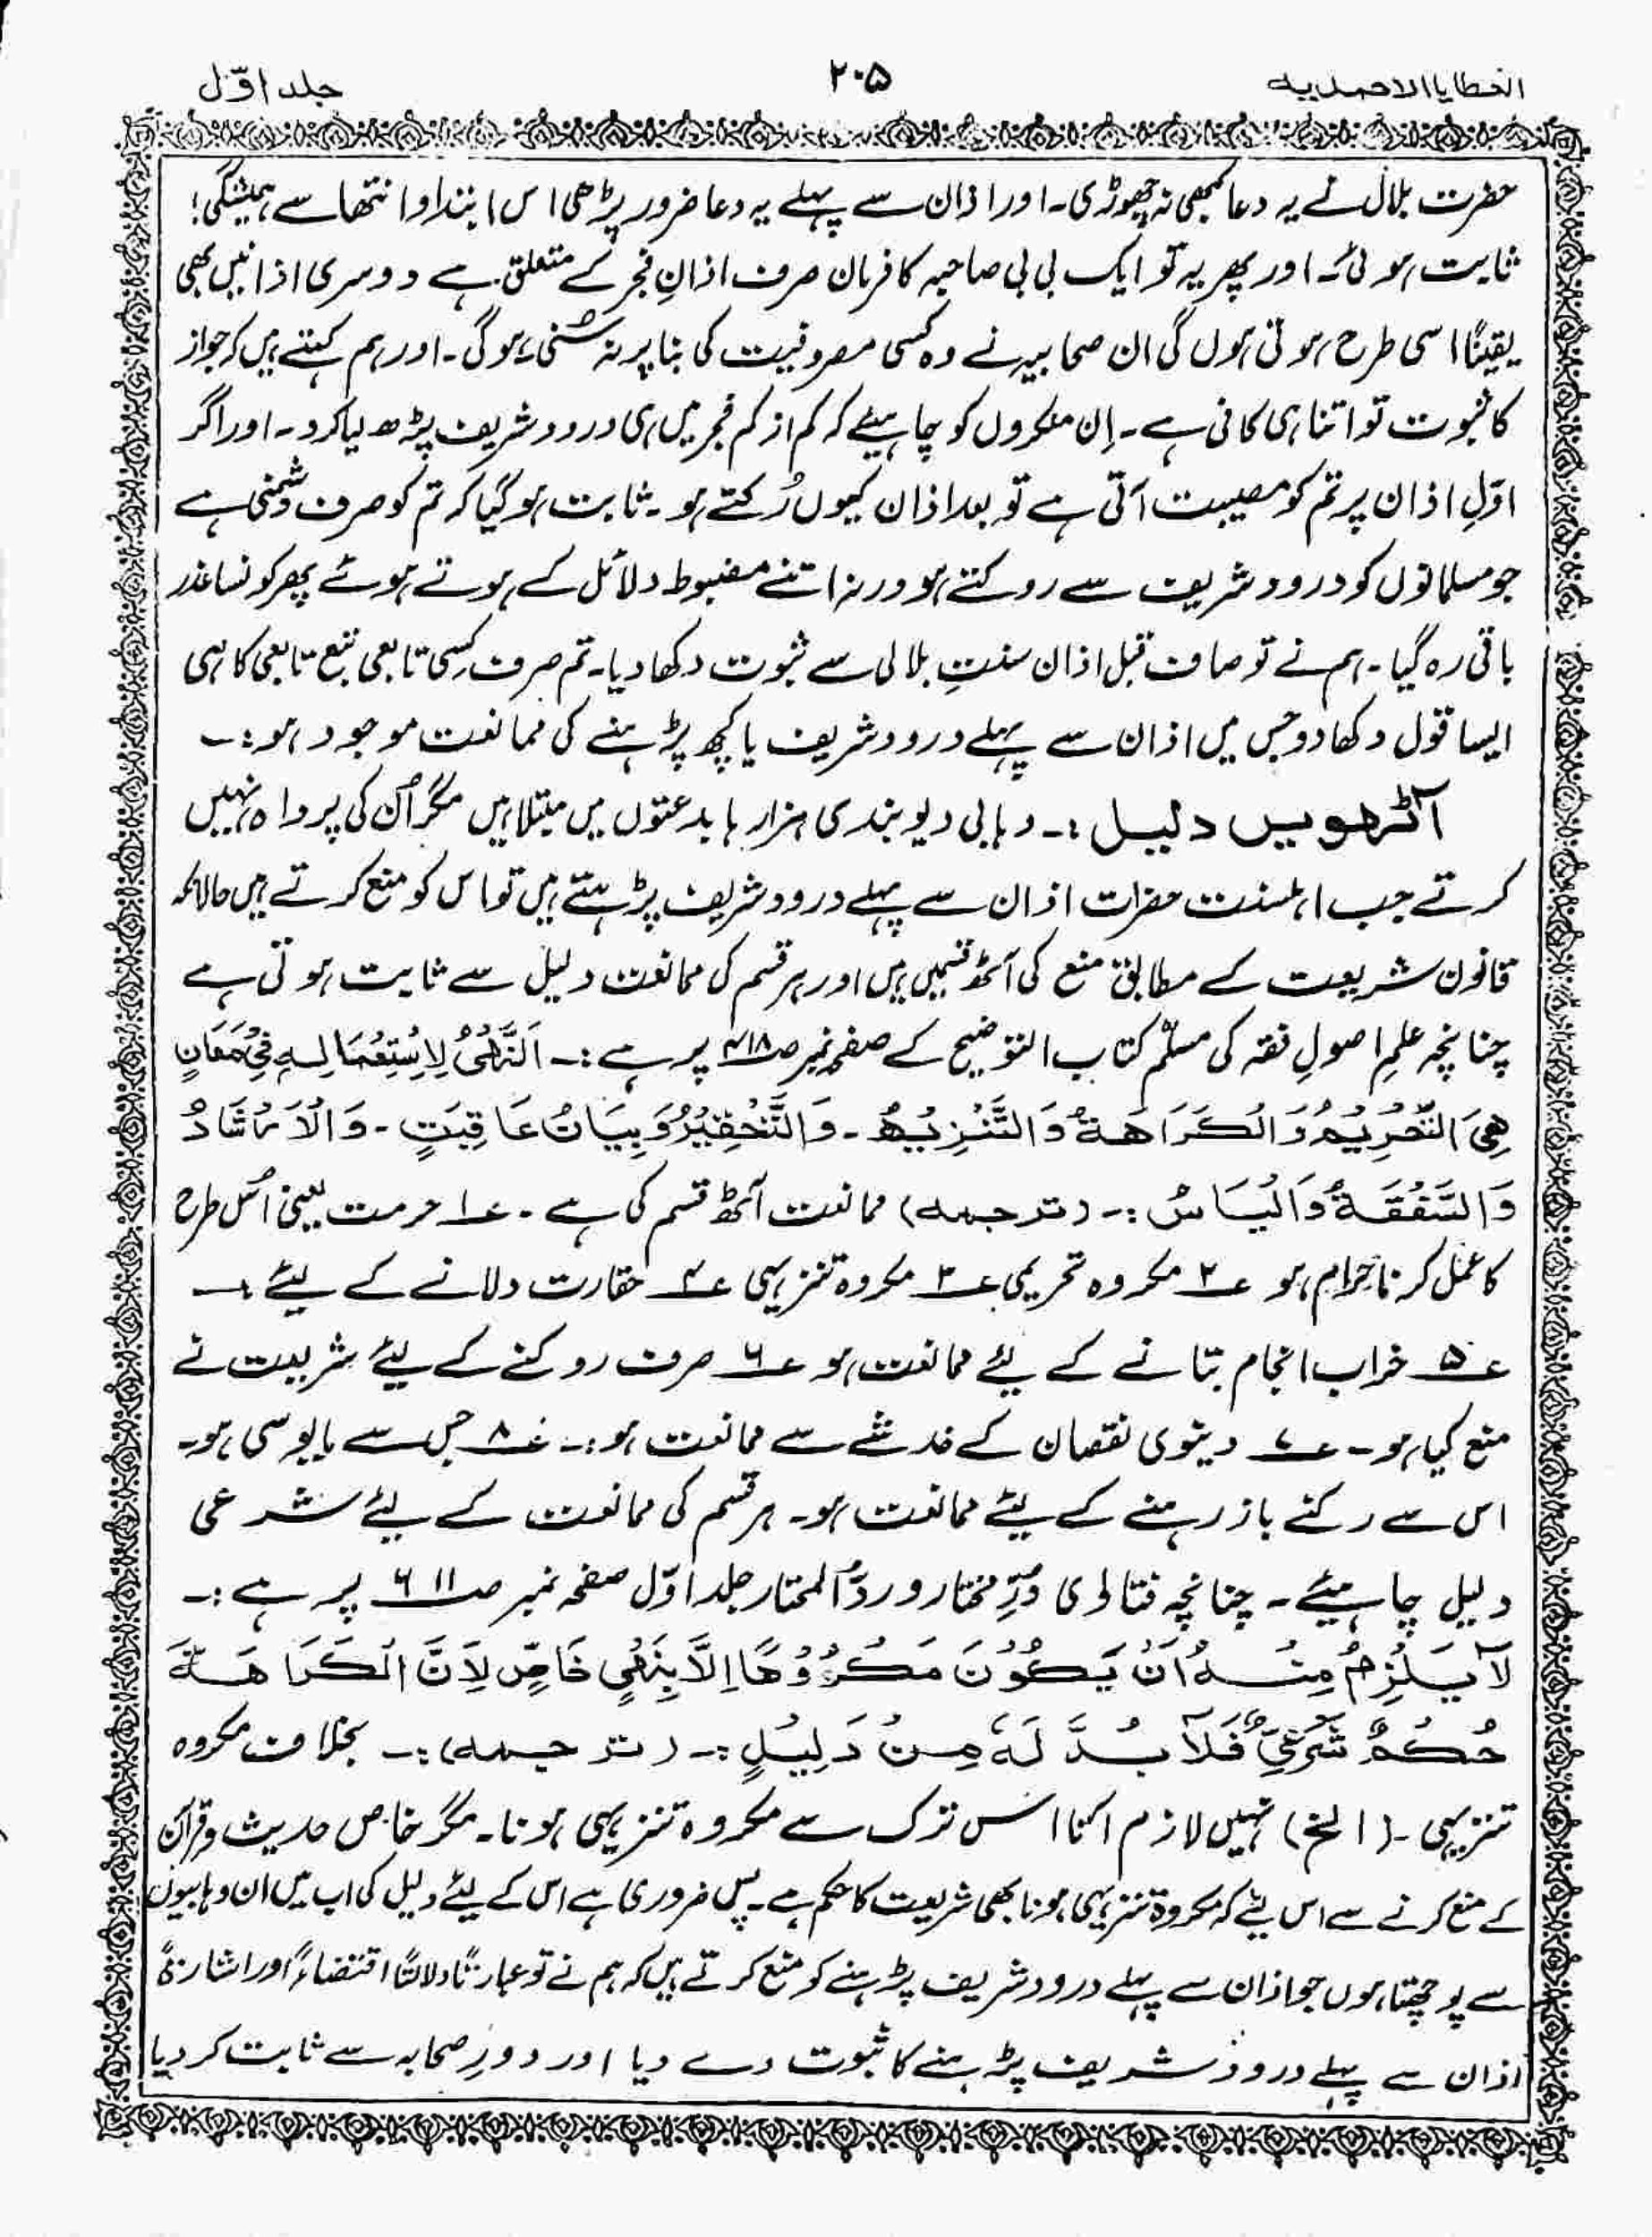 العطایا الاحمدیہ ۲۰۵ جلد اوّل
حضرت بلال نے یہ دعا کبھی نہ چھوڑی۔ اور اذان سے پہلے یہ دعا ضرور پڑھی اس ابتداو انتھا سے ہمیشگی!
ثابت ہوئی۔ اور پھر یہ تو ایک بی بی صاحبہ کا فرمان صرف اذانِ فجر کے متعلق ہے دوسری اذانیں بھی
یقینًا اسی طرح ہوتی ہوں گی ان صحابیہ نے وہ کسی مصروفیت کی بنا پر نہ سُنی ہوگی۔ اور ہم کہتے ہیں کہ جواز
کا ثبوت تو اتنا ہی کافی ہے۔ اِن منکروں کو چاہیئے کہ کم از کم فجر میں ہی درود شریف پڑھ لیا کرد۔ اور اگر
اوّلِ اذان پر تم کو مصیبت آتی ہے تو بعد اذان کیوں رُکتے ہو۔ ثابت ہوگیا کہ تم کو صرف دشمنی ہے
جو مسلمانوں کو درود شریف سے روکتے ہو ورنہ اتنے مضبوط دلائل کے ہوتے ہوئے پھر کونسا عذر
باقی رہ گیا۔ ہم نے تو صاف قبل اذان سنتِ بلالی سے ثبوت دکھا دیا۔ تم صرف کِسی تابعی تبع تابعی کا ہی
ایسا قول دکھا دو جس میں اذان سے پہلے درود شریف یا کچھ پڑہنے کی ممانعت موجود ہو:۔
آٹھویں دلیل :۔ وہابی دیوبندی ہزار ہا بدعتوں میں مبتلا ہیں مگر اُن کی پرواہ نہیں
کرتے جب اہلسنت حضرات اذان سے پہلے درود شریف پڑہتے ہیں تو اس کو منع کرتے ہیں حالانکہ
قانون شریعت کے مطابق منع کی آٹھ قسمیں ہیں اور ہر قسم کی ممانعت دلیل سے ثابت ہوتی ہے
چنانچہ علمِ اصولِ فقہ کی مسلّم کتاب التوضیح کے صفحہ نمبر صـ۴۱۸ پر ہے :۔ اَلنَّهْیُ لِاِسْتِعْمَالِهٖ فِیْ مَعَانٍ
هِیَ التَّحْرِیْمُ وَالْکَرَاهَةُ وَالتَّنْزِیْهُ۔ وَالتَّحْقِیْرُ وَبِیَانُ عَاقِبَتٍ۔ وَالْاِرْشَادُ
وَالشَّفْقَةُ وَالْیَاسُ :۔ (ترجمہ) ممانعت آٹھ قسم کی ہے۔ عـ۱ حرمت یعنی اُس طرح
کا عمل کرنا حرام ہو عـ۲ مکروہ تحریمی عـ۳ مکروہ تنزیہی عـ۴ حقارت دلانے کے لیئے ۔
عـ۵ خراب انجام بتانے کے لئے ممانعت ہو عـ۶ صرف روکنے کے لیئے شریعت نے
منع کیا ہو۔ عـ۷ دینوی نقصان کے خدشے سے ممانعت ہو:۔ عـ۸ جس سے مایوسی ہو۔
اس سے رکنے باز رہنے کے لیئے ممانعت ہو۔ ہر قسم کی ممانعت کے لیئے شرعی
دلیل چاہیئے۔ چنانچہ فتاوٰی دُرِّ مختار و ردُّ المحتار جلد اوّل صفحہ نمبر صـ۶۱۱ پر ہے :۔
لَا یَلْزِمُ مِنْهُ اَنْ یَکُوْنَ مَکْرُوْهًا اِلَّا بِنَهْیٍ خَاصٍّ لِاَنَّ الْکَرَاهَةَ
حُکْمٌ شَرْعِیٌّ فَلَا بُدَّ لَهٗ مِنْ دَلِیْلٍ :۔ (ترجمہ) :۔ بخلاف مکروہ
تنزیہی۔ (الخ) نہیں لازم اتنا اس ترک سے مکروہ تنزیہی ہونا۔ مگر خاص حدیث و قرآن
کے منع کرنے سے اس لیئے کہ مکروہ تنزیہی ہونا بھی شریعت کا حکم ہے۔ پس ضروری ہے اس کے لیئے دلیل کی اب میں ان وہابیوں
سے پوچھتا ہوں جو اذان سے پہلے درود شریف پڑہنے کو منع کرتے ہیں کہ ہم نے تو عبارتًا دلالتًا اقتضاءً اور اشارۃً
اذان سے پہلے درود شریف پڑہنے کا ثبوت دے دیا اور دورِ صحابہ سے ثابت کر دیا